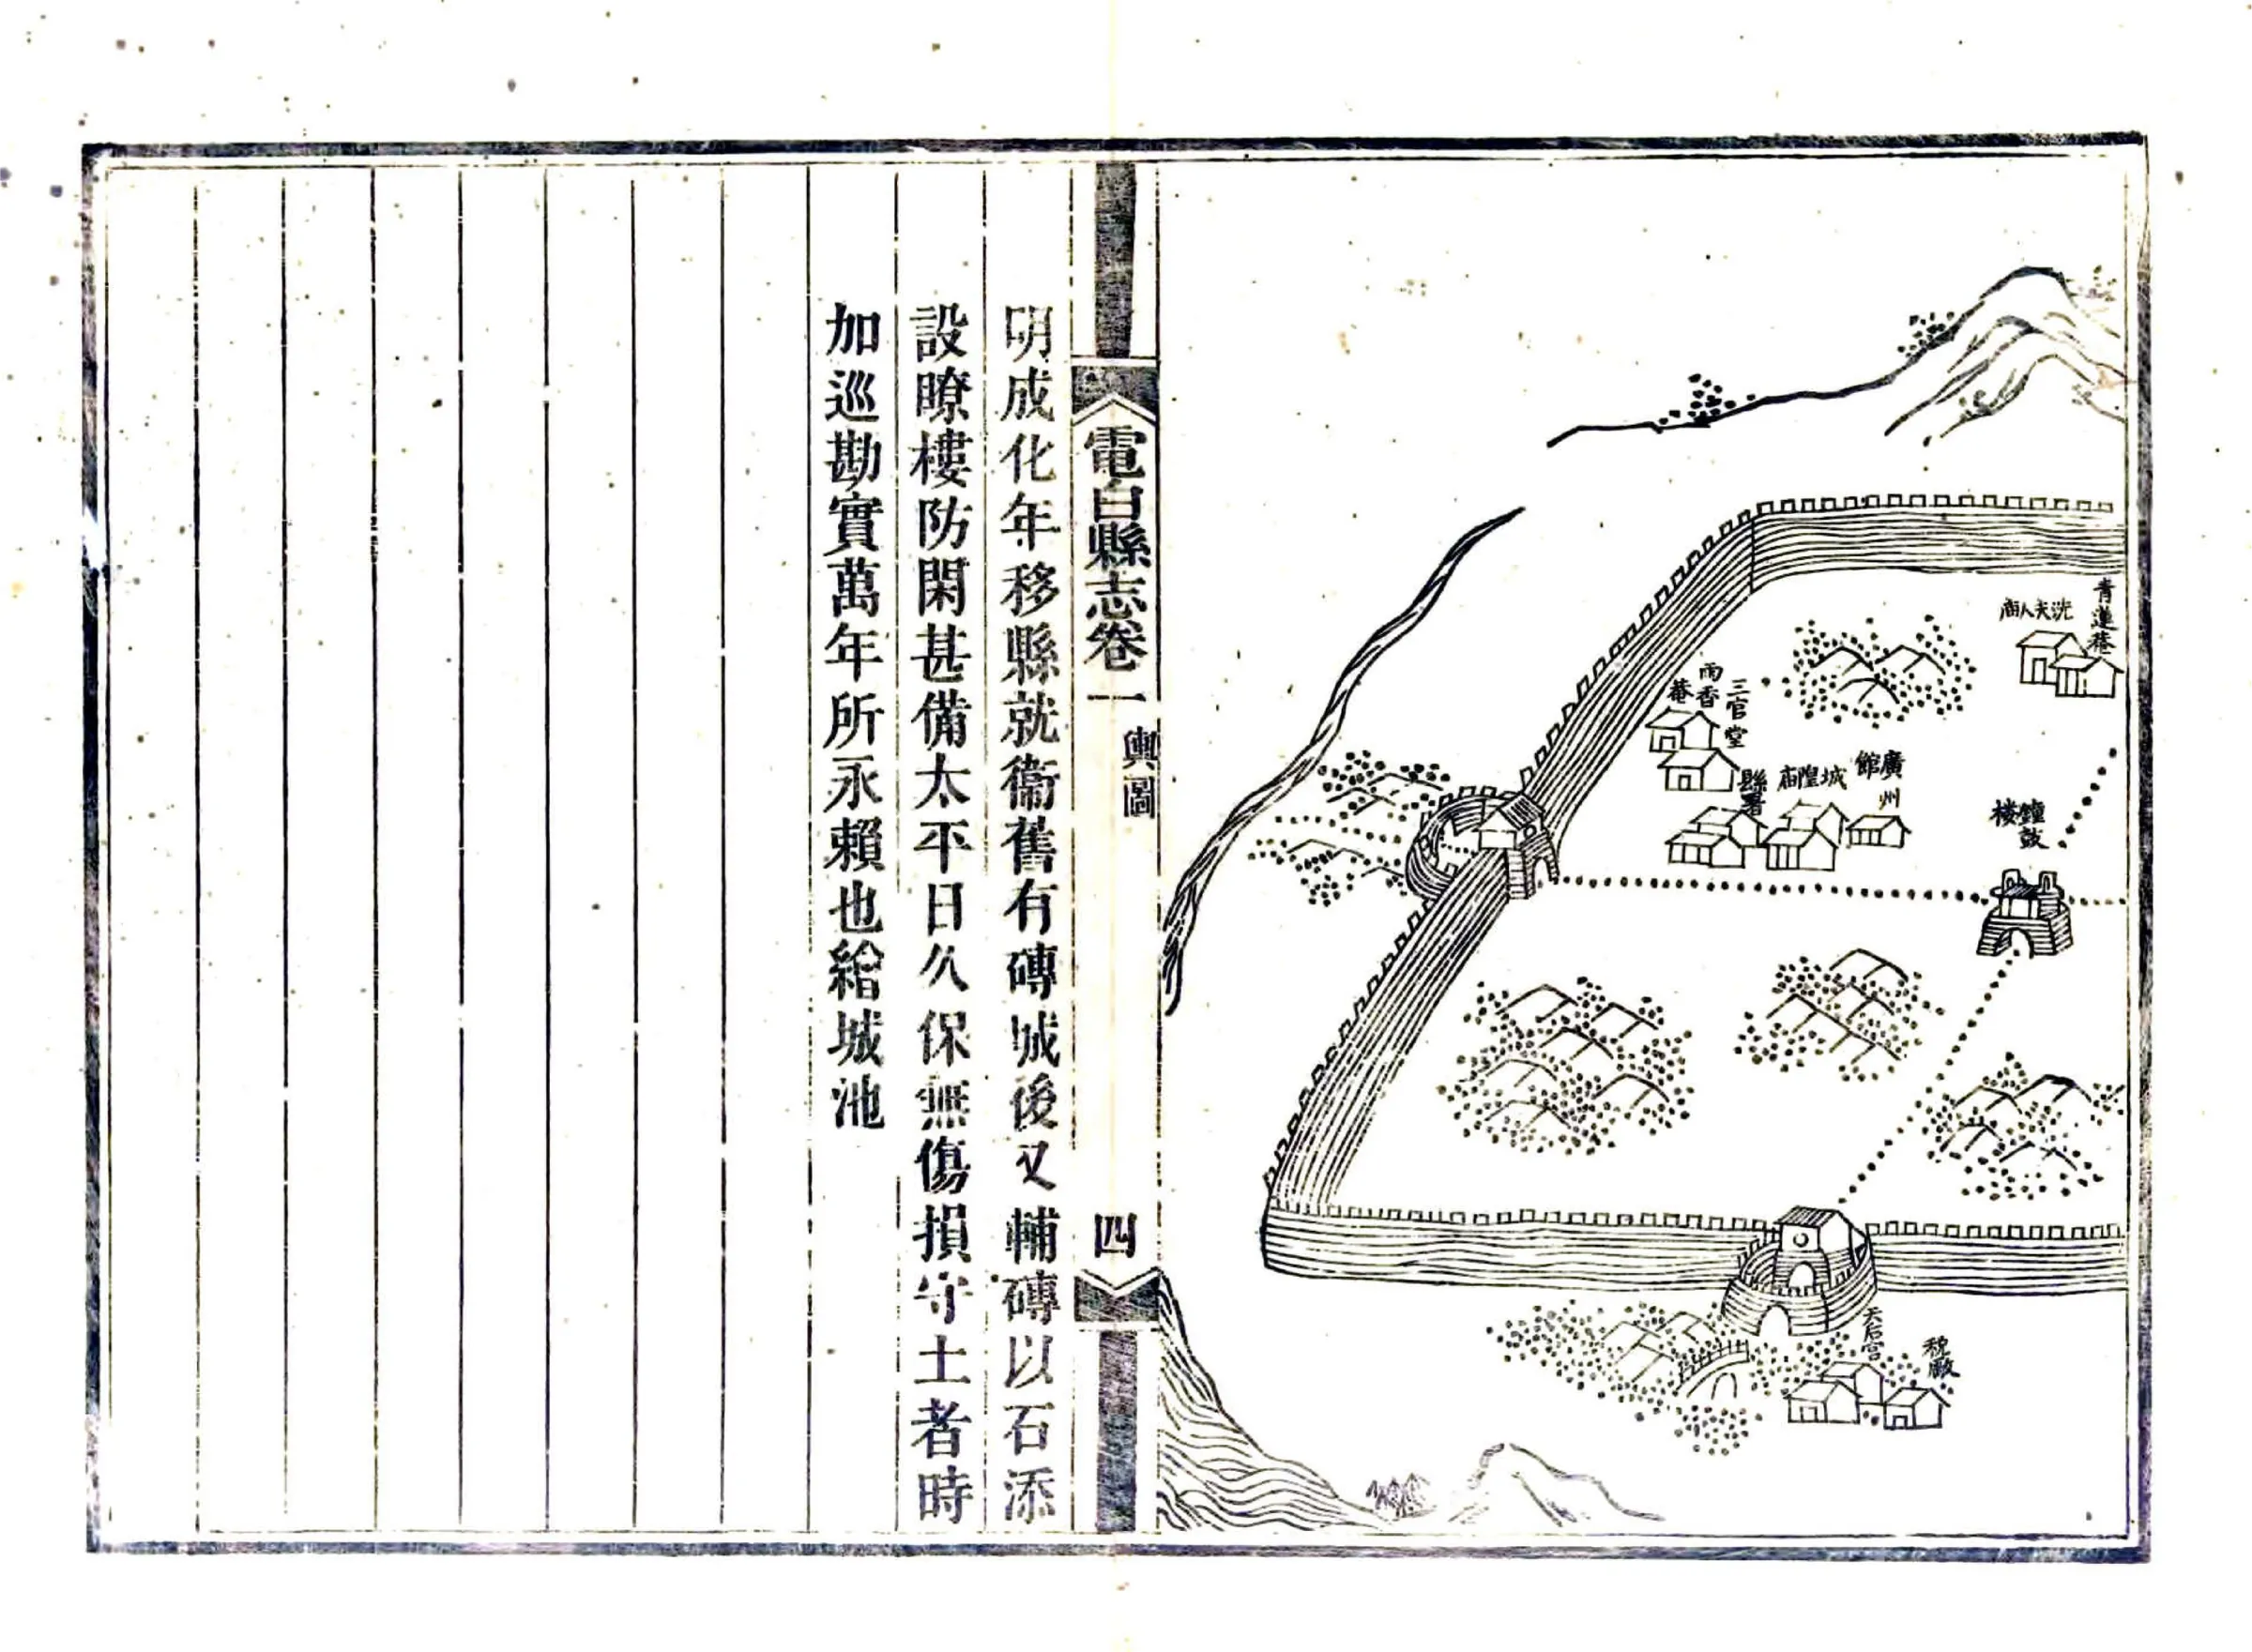 青蓮菴
冼夫人廟
鐘鼓楼
廣州館
城隍庙
縣署
三官堂
雨香菴
稅廠
天后宫
電白縣志卷一
輿圖
四
明成化年移縣就衞舊有磚城後又輔磚以石添
設瞭樓防閑甚備太平日久保無傷損守土者時
加巡勘實萬年所永賴也繪城池